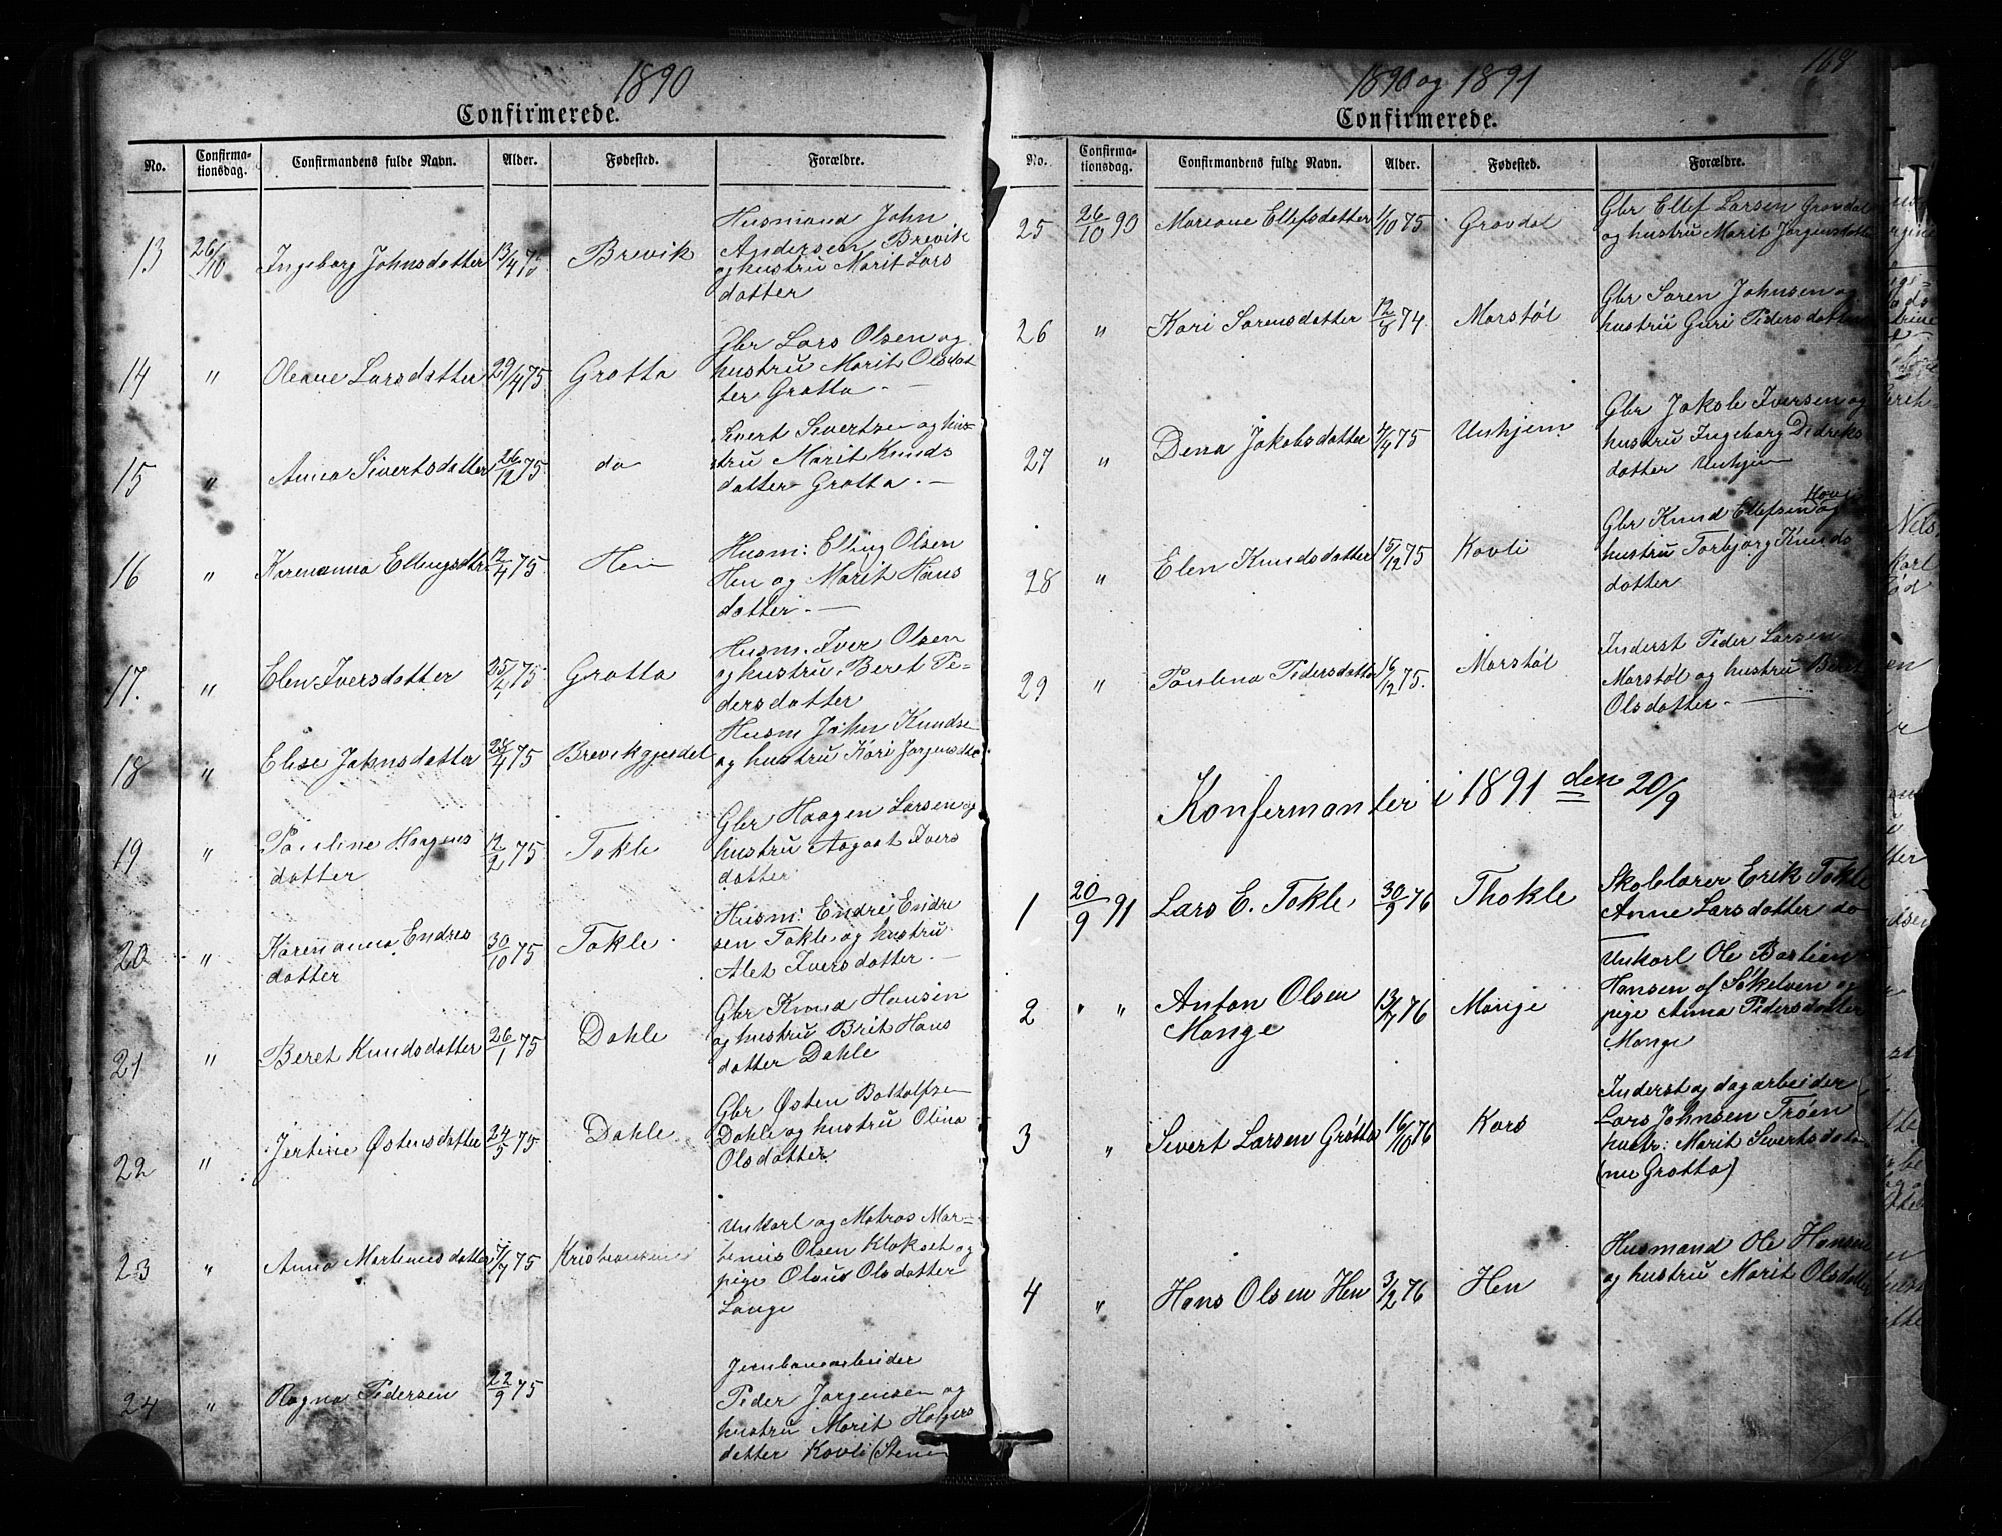 1890
Confirmerede.
No. Confirma-tionsdag. Confirmandens fulde Navn. Alder. Fødested. Forældre.
13 26/10 Ingeborg Johnsdatter 13/4 75 Brevik Husmand John
Andersen Brevik
og hustru Marit Lars
datter
14 " Oleane Larsdatter 29/4 75 Grøtta Gbr Lars Olsen og
hustru Marit Olsdat
ter Grøtta. —
15 " Anna Sivertsdatter 26/12 75 do Sivert Sivertsen og hus-
tru Marit Knuds
datter Grøtta. —
16 " Karenanna Ellingsdtr 12/4 75 Hen Husm: Elling Olsen
Hen og Marit Hans
datter. —
17. " Elen Iversdatter 25/4 75 Grøtta Husm. Iver Olsen
og hustru Beret Pe-
dersdatter
18 " Elise Johnsdatter 28/4 75 Brevikgjerdet Husm John Knudse
og hustru Kari Jørgensdtr
19 " Pauline Haagens
datter 12/2 75 Tokle Gbr Haagen Larsen og
hustru Aagaat Ivers
datter
20 " Karenanna Endres
datter 30/10 75 Tokle. Husm: Endre Endre
sen Tokle og hustru
Alet Iversdatter. —
21 " Beret Knudsdatter 26/1 75 Dahle Gbr Knud Hansen
og hustru Brit Hans
datter Dahle
22 " Jertine Østensdatter 24/5 75 Dahle Gbr Østen Boltolfsen
Dahle og hustru Olina
Olsdatter
23 " Anna Martinusdatter 7/7 75 Kristiansund Unkarl og Matros Mar-
tinus Olsen Klokset og
pige Olaus Olsdatter
Lange
24 " Ragna Pedersen 22/9 75 Jernbanearbeider
Peder Jørgensen og
hustru Marit Holgers
datter Kovli (Stene
1890 og 1891
168
Confirmerede.
No. Confirma-tionsdag. Confirmandens fulde Navn. Alder. Fødested. Forældre.
25 26/10 90 Mareane Ellefsdatter 1/10 75 Grøvdal Gbr Ellef Larsen Grøvdal
og hustru Marit Jørgensdatter
26 " Kari Sørensdatter 12/8 74. Marstøl Gbr Søren Johnsen og
hustru Guri Pedersdatter
27 " Dena Jakobsdatter 4/7 75 Unhjem Gbr Jakob Iversen og
hustru Ingeborg Didriks
datter Unhjem
28 " Elen Knudsdatter 15/12 75 Kovli Gbr Knud Ellefsen Kovli og
hustru Torbjørg Knuds
datter
29 " Paulina Pedersdatter 16/12 75. Marstøl Inderst Peder Larsen
Marstøl og hustru Beret
Olsdatter. —
Konfermanter i 1891 den 20/9
1 20/9 91 Lars E. Tokle 30/9 76 Thokle Skolelærer Erik Tokle
Anne Larsdatter do
2 " " Anton Olsen
Mange 13/7 76 Mange Unkarl Ole Bastian
Hansen af Søkelven og
pige Anna Pedersdatter
Mange
3 " Sivert Larsen Grøtta 16/10 76 Kors Inderst og dagarbeider
Lars Johnsen Trøen
hustr: Marit Sivertsdatter
(nu Grøtta)
4 " Hans Olsen Hen 3/2 76 Hen Husmand Ole Hansen
og hustru Marit Olsdatter